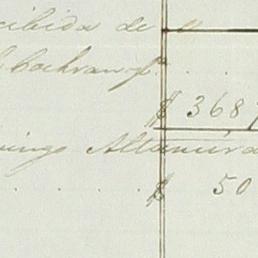 cibida de
Cochran p.
$ 368
ingo Altamira
$ 50